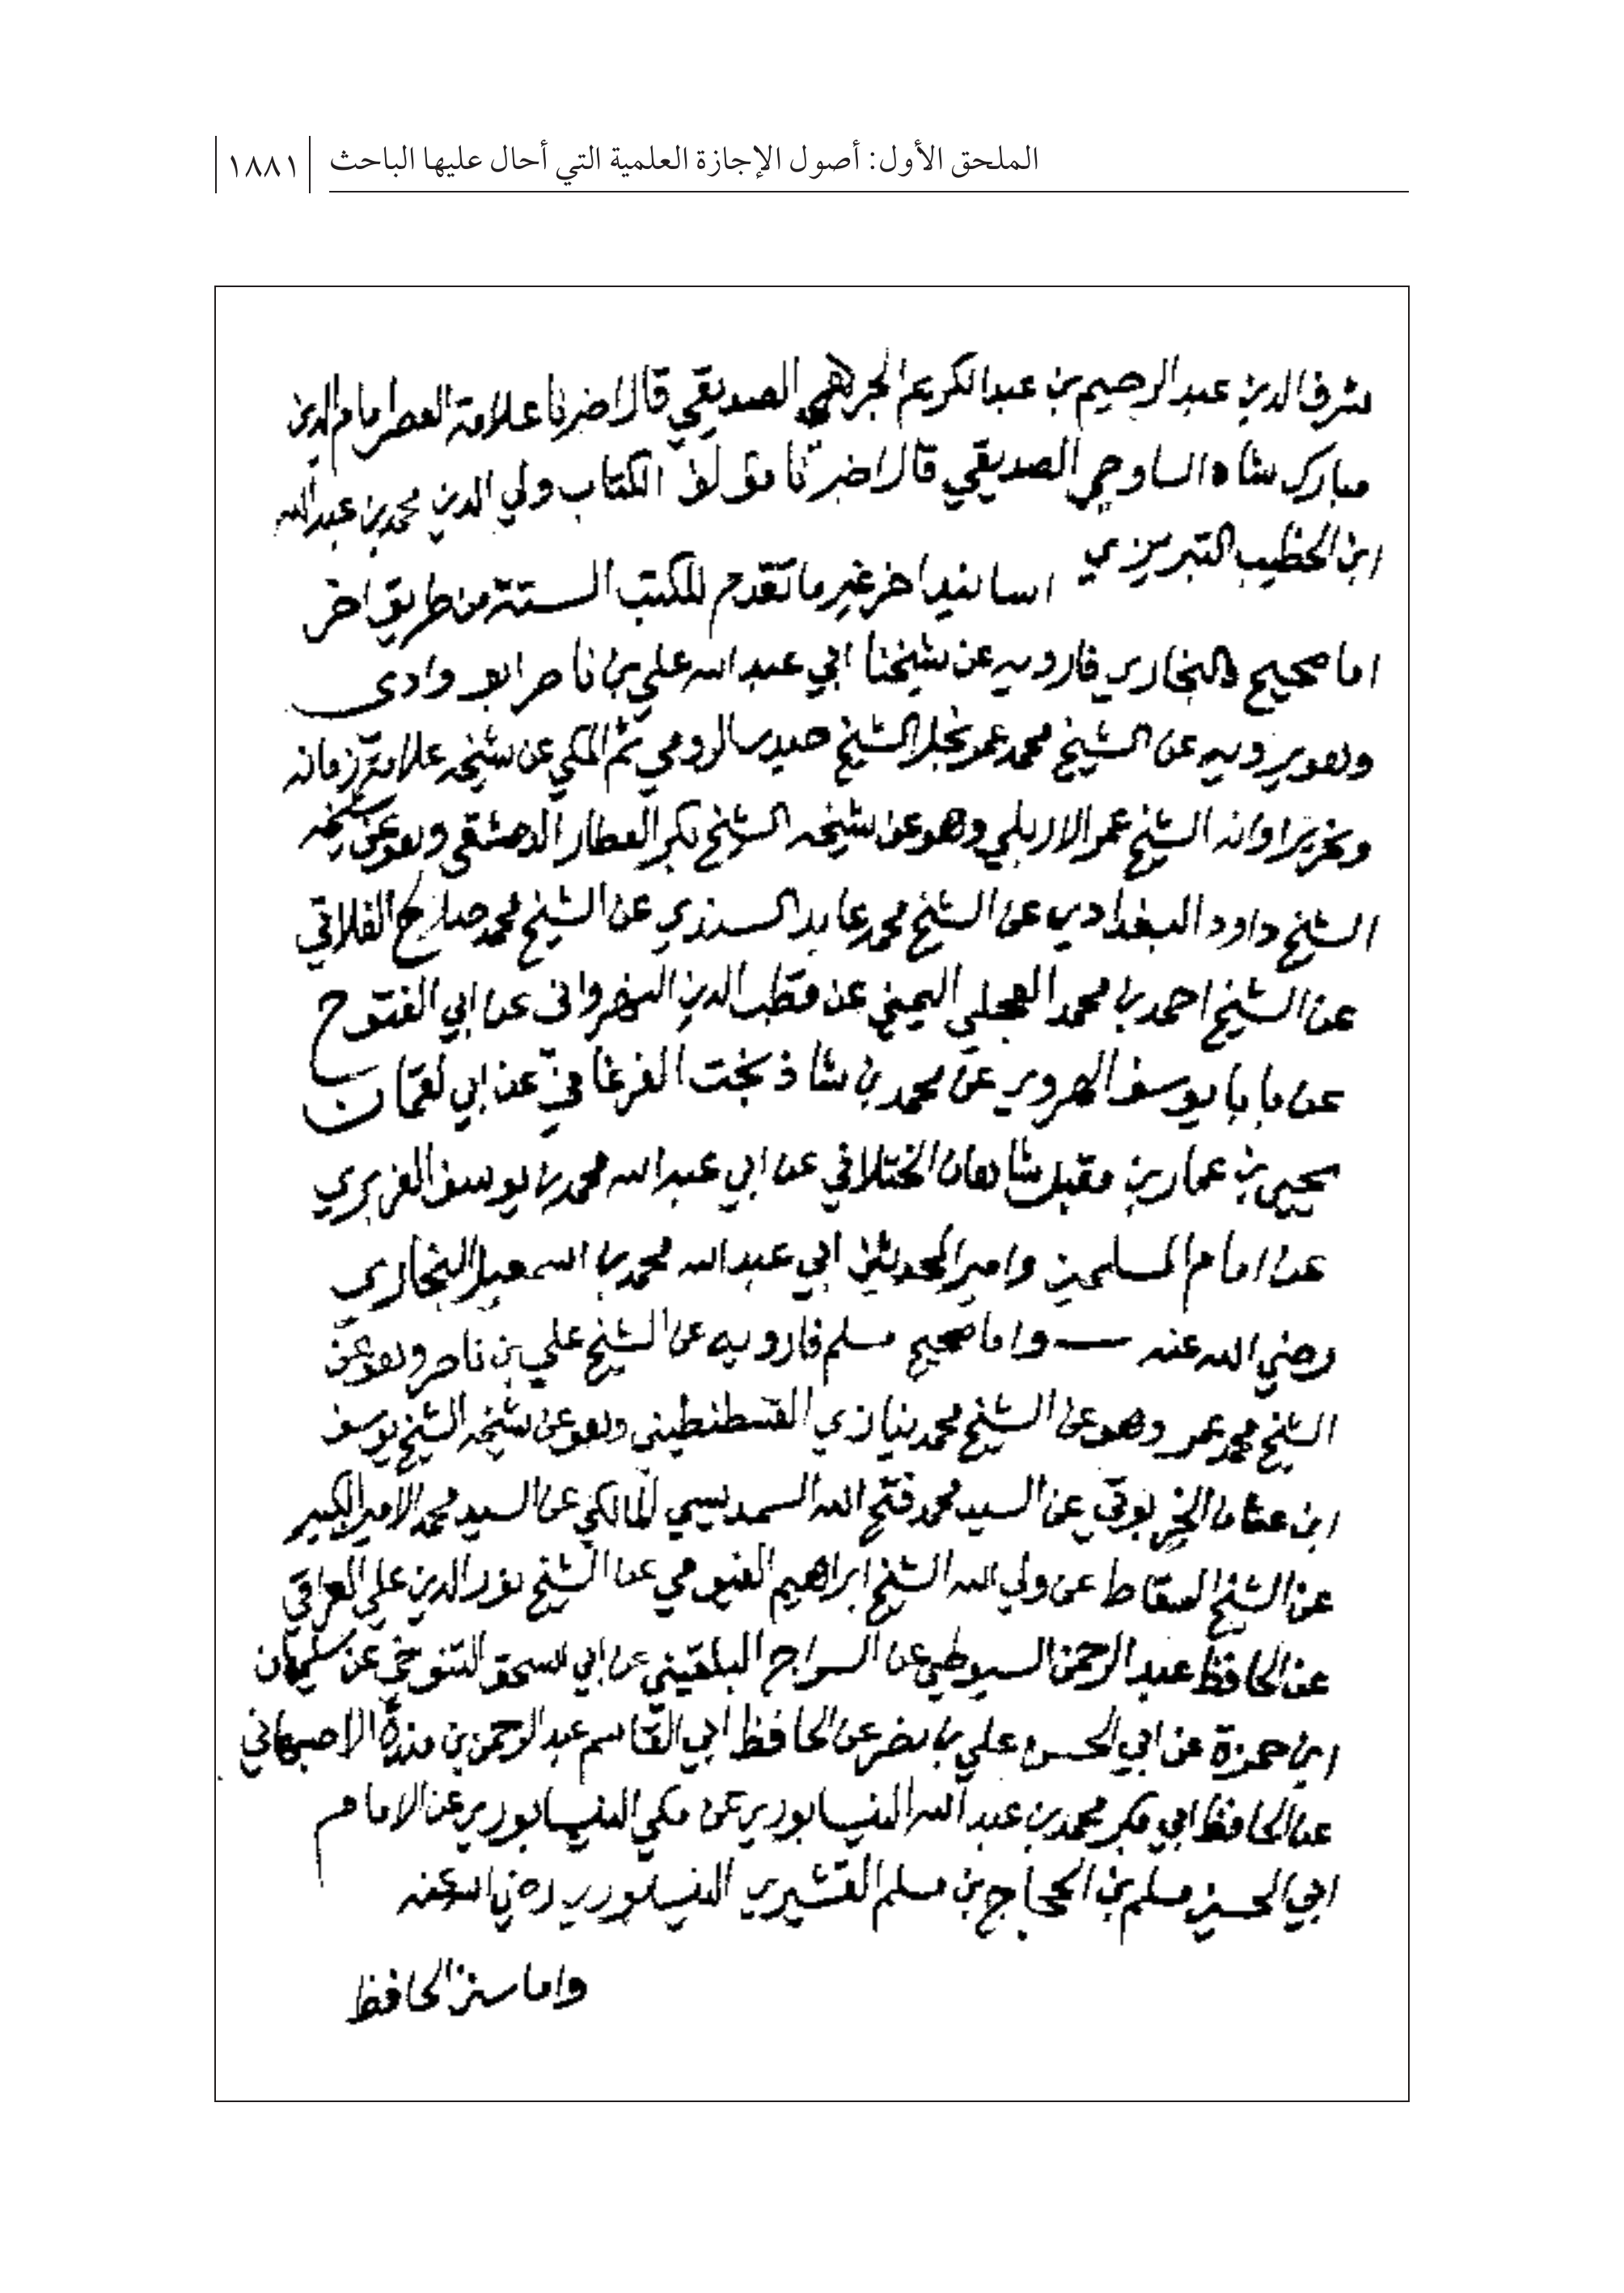 الملحق الأول: أصول الإجازة العلمية التي أحال عليها الباحث | ١٨٨١
شرف الدين عبد الرحيم بن عبد الكريم الجرهمي الصديقي قال اخبرنا علامة العصر امام الدين
مبارك شاه الساوجي الصديقي قال اخبرنا مؤلف الكتاب ولي الدين محمد بن عبد الله
ابن الخطيب التبريزي اسانيد اخر غير ما تقدم للكتب الستة من طريق اخر
اما صحيح البخاري فارويه عن شيخنا ابي عبد الله علي بن ناصر ابو وادى
وهو يرويه عن الشيخ محمد عمر نجل الشيخ حيدر الرومي ثم المكي عن شيخه علامة زمانه
اوانه الشيخ عمر الاربلي وهو عن شيخه الشيخ بكر العطار الدمشقي وهو عن شيخه
الشيخ داود البغدادي عن الشيخ محمد عابد السندي عن الشيخ محمد صلاح الفلاتي
عن الشيخ احمد بن محمد العجلي اليمني عن قطب الدين النهرواني عن ابي الفتوح
عن بابا يوسف الهروي عن محمد بن شاذ بخت الفرغاني عن ابي لقمان
يحيى بن عمار بن مقبل شاهان الختلاني عن ابي عبد الله محمد بن يوسف الفربري
عن امام المسلمين وامير المحدثين ابي عبد الله محمد بن اسمعيل البخاري
رضي الله عنه — واما صحيح مسلم فارويه عن الشيخ علي بن ناصر وهو عن
الشيخ محمد عمر وهو عن الشيخ محمد نيازي القسطنطيني وهو عن شيخه الشيخ يوسف
ابن عثمان الخربوتي عن السيد محمد فتح الله السمديسي المالكي عن السيد محمد الامير الكبير
عن الشيخ السقاط عن ولي الله الشيخ ابراهيم الفيومي عن الشيخ نور الدين علي العراقي
عن الحافظ عبد الرحمن السيوطي عن السراج البلقيني عن ابي اسحق التنوخي عن سليمان
ابن حمزة عن ابي الحسن علي بن نصر عن الحافظ ابي القاسم عبد الرحمن بن مندة الاصبهاني
عن الحافظ ابي بكر محمد بن عبد الله النيسابوري عن مكي النيسابوري عن الامام
ابي الحسين مسلم بن الحجاج بن مسلم القشيري النيسابوري رضي الله عنه
واما سنن الحافظ